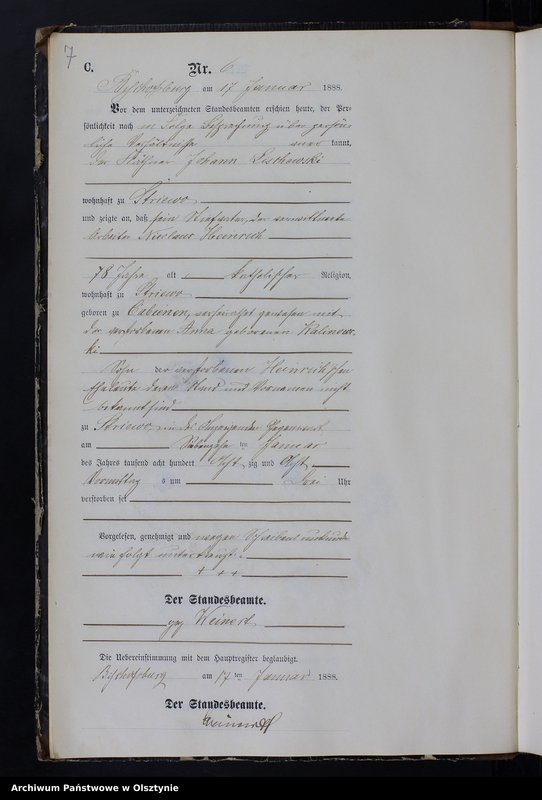 7
C.
Nr. 6
Bischofsburg am 17 Januar 1888.
Vor dem unterzeichneten Standesbeamten erschien heute, der Per-
sönlichkeit nach in Folge Besprechung über persön-
liche Verhältnisse aner kannt,
der Käthner Johann
wohnhaft zu Striewo
und zeigte an, daß sein Stiefvater, der verwittwete
Arbeiter Nicolaus Heinrich
78 Jahre alt, katholischer Religion,
wohnhaft zu Striewo
geboren zu Cabienen, verheirathet gewesen mit
der verstorbenen Anna geborenen Kalinow-
ski
Sohn der verstorbenen Heinrich'schen
Eheleute deren Stand und Vornamen nicht
bekannt sind
zu Striewo, in des Anzeigenden Gegenwart
am Siebenzehn ten Januar
des Jahres tausend acht hundert Acht zig und Acht
Vormittag s um Drei Uhr
verstorben sei
Vorgelesen, genehmigt und wegen Schreibensunkunde
wie folgt unterkreuzt.
+ + +
Der Standesbeamte.
gez Weinert
Die Uebereinstimmung mit dem Hauptregister beglaubigt.
Bischofsburg am 17 ten Januar 1888.
Der Standesbeamte.
Weinert
Archiwum Państwowe w Olsztynie